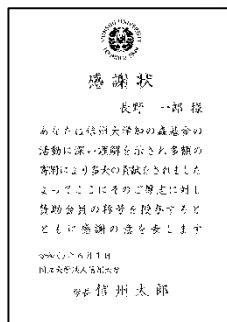 SHINSHU UNIVERSITY
感謝状
長野 一郎 様
あなたは信州大学知の森基金の
活動に深い理解を示され多額の
寄附により多大の貢献をされました
よってここにそのご厚志に対し
賛助会員の称号を授与すると
ともに感謝の意を表します
年6月1日
国立大学法人信州大学
学長 信州太郎